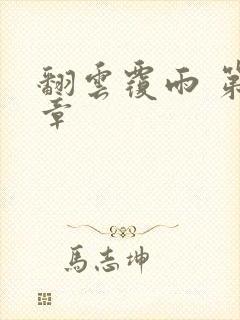 翻雲覆雨 第
章
馬志坤